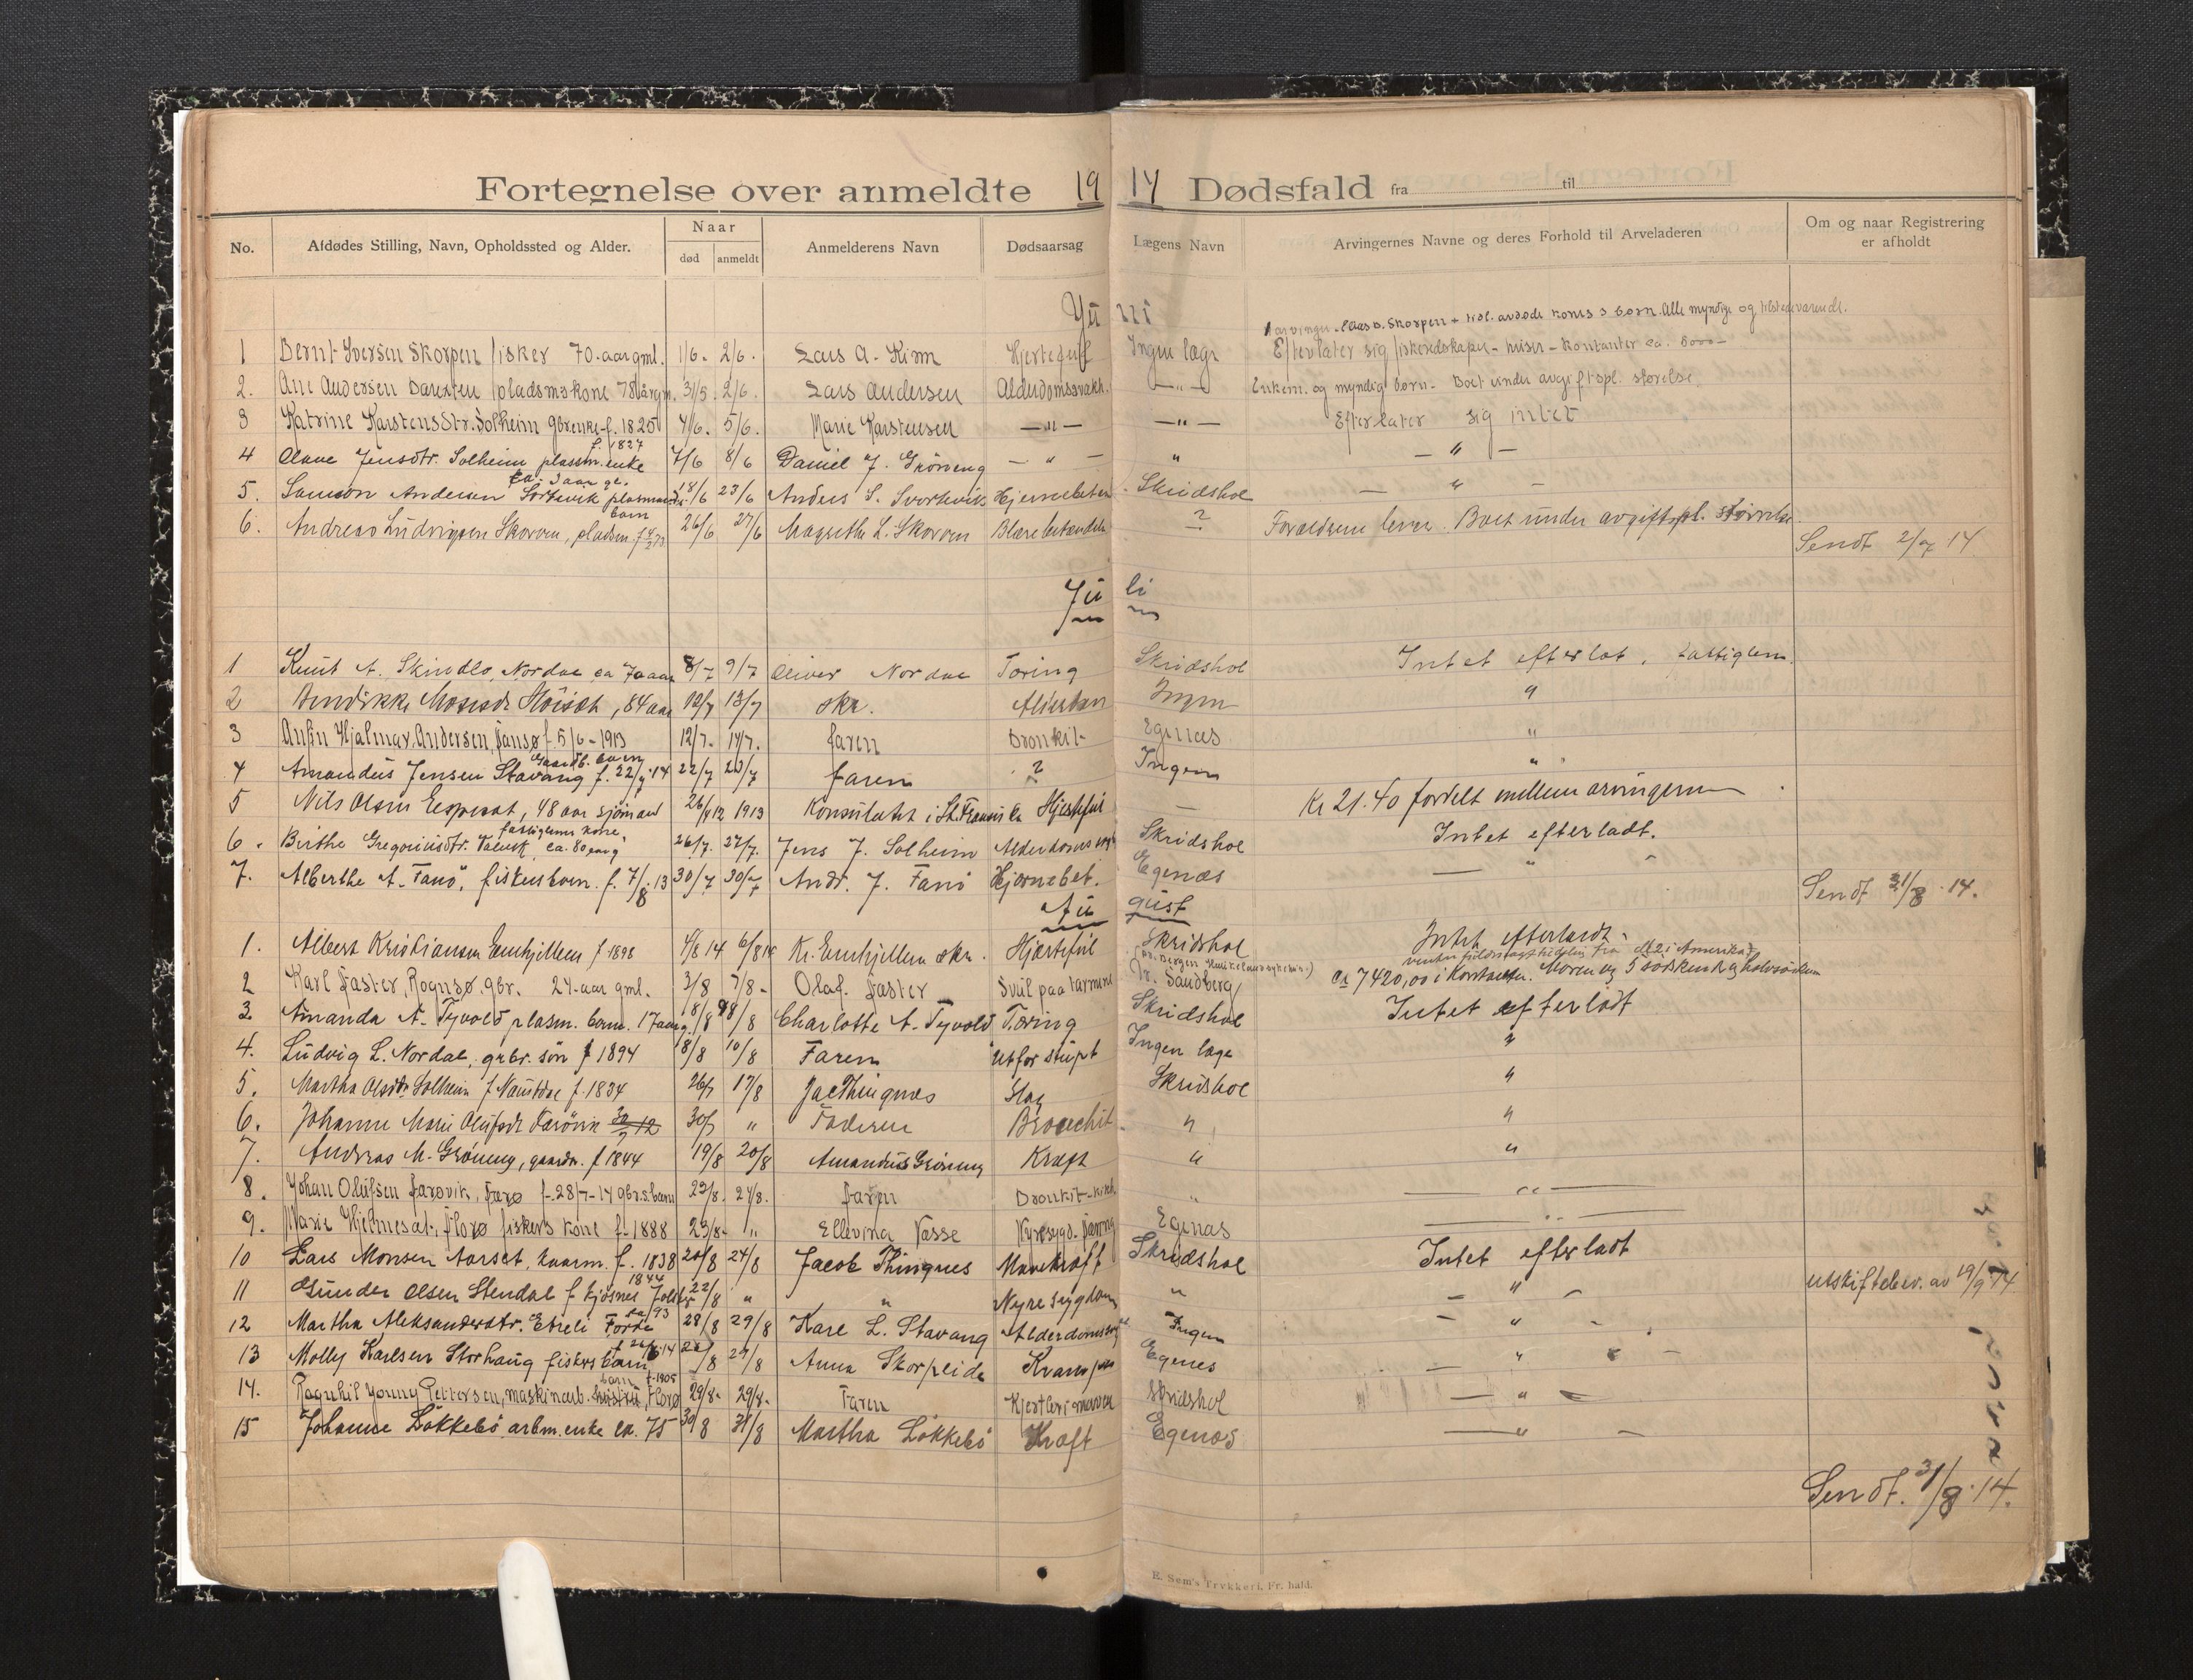 Fortegnelse over anmeldte 19 14 Dødsfald fra til
No. Afdødes Stilling, Navn, Opholdssted og Alder. Naar død anmeldt Anmelderens Navn Dødsaarsag Lægens Navn Arvingernes Navne og deres Forhold til Arveladeren Om og naar Registrering er afholdt
Juni
arvinger avdøde kones 3 børn. Alle myndige og tilstedeværende.
1 Bernt Iversen Skorpen fisker 70 aar gml. 1/6. 2/6. Lars A. Kinn Hjertefeil Ingen læge Efterlater sig fiskeredskaper - huser - Kontanter ca. 5000-
2. Ane Andersen pladsm.kone 31/5. 2/6. Lars Andersen Alderdomssvakh. —„— Enkem. og myndig børn. Boet under avgiftspl. størelse.
3 Katrine Karstensdtr. Solheim gbr.enke f. 1825 4/6. 5/6. Marie Karstensen —„— —„— Efterlater sig intet
f. 1827
4 Olave Jensdtr. Solheim plassm.enke 7/6 8/6 Daniel J. Grøneng — „ — „ — „ —
ca. 3 aar gl.
5. Samson Andersen Sortevik 18/6 23/6 Anders S. Svortevik Hjernebeten. Skridshol — „ —
barn
6. Andreas Ludvigsen Skorven, pladsm. 26/6 27/6 Magrethe L. Skorven Blærebetændelse ? Forældrene lever. Boet under avgiftspl. størrelse.
Sendt 2/7 14
Juli
1 Knut A. Nordal ca 70 aar 8/7 9/7 Oliver Nordal Tæring Skridshol Intet efterlat. Fattiglem.
2 Mosesdr. , 84 aar 12/7 13/7 skr. Alderdom Ingen „
3 Anfin Hjalmar Andersen, Fansø f. 5/6 - 1913 12/7. 14/7. faren Bronkit- Egenæs „
Gaardb. barn
4 Amandus Jensen Stavang f. 22/7.14 22/7 23/7 faren ? Ingen „
5 Nils Olsen 48 aar sjømand 26/12 1913 Konsulatet i St. Fransisko Hjertefeil — Kr 21.40 fordelt mellem arvingerne
fattiglems kone,
6. Birthe Gregoriusdtr. ca. 80 aar g 26/7. 27/7. Jens J. Solheim Skridshol Intet efterladt.
7. Alberthe A. Fanø, fiskersbarn. f. 7/8.13 30/7 30/7 Andr. J. Fanø Hjernebet. Egenæs — „ —
Sendt 31/8.14.
August
1. Albert Kristiansen Emhjellen f 1898 4/8 14 6/8 14 Kr. Emhjellen skr. Hjertefeil Skridshol Intet efterladt.
2 Karl Faster, Rognsø. gbr. 24 aar gml. 3/8 7/8. Olaf. Faster Svul paa tarmene Dr. Sandberg ca 7420,00 i Kontanter. Moren og 5 søsken
3 Amanda A. Tyvold plasm. barn. 17 aar g. 18/8 Charlotte A. Tyvold Tæring Skridshol Intet efterladt
4. Ludvig L. Nordal, grbr. søn f 1894 8/8 10/8 Faren utfor stupt Ingen læge „
5. Martha Olsdtr. Solheim f Naustdal f. 1834 26/7 17/8 Jac Thingnes Slag Skridshol „
6. Johanne Marie Olufsdr Færøvik 30/7 „ Faderen Bronchit. „ „
7. Andreas M. Grøneng, gaardm. f 1844 19/8 20/8 Amandus Grøneng Kræft „ „
8. Johan Olufsen Færøvik, Færø f. 28/7-14 gbr.s. barn 23/8. 24/8. Faren Bronkit- „ — „ —
9. Marie Hjelmeset, Florø fiskers kone f. 1888 23/8. „ Ellevina Vasse Nyresygd. Egenæs — „ —
10 Lars Monsen Aarset, kaarm. f. 1838 20/8 24/8 Jacob Thingnes Mavekræft Skridshol Intet efterladt
1844
11 Gunder Olsen Stendal f. Kjøsnes Jølster 22/8 „ „ Nyresygdom „ — „ — utskiftebev. av 19/9 14
ca/93
12 Martha Aleksandersdtr. Førde 28/8 29/8 Karl L. Stavang Ingen — „ —
13 Molly Karlsen Storhaug fiskers barn 29/8 Anna Skorpeide Egenes — „ —
barn f. 1905
14. Ragnhil Jonny Pettersen, maskinarb. Florø 29/8. 29/8. Faren Kjertler i maven Skridshol — „ —
15 Johanne Løkkebø arbm. enke ca. 75 30/8 31/8 Martha Løkkebø Kræft Egenæs — „ —
Sendt. 31/8.14.
E. Sem's Trykkeri, Fr. hald.